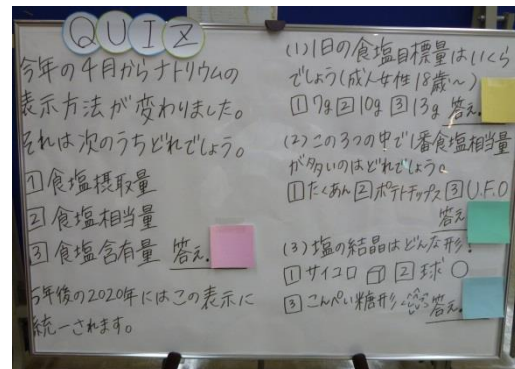 QUIZ
今年の4月からナトリウムの
表示方法が変わりました。
それは次のうちどれでしょう。
1 食塩摂取量
2 食塩相当量
3 食塩含有量 答え.
5年後の2020年にはこの表示に
統一されます。
(1)1日の食塩目標量はいくら
でしょう(成人女性18歳〜)
1 7g 2 10g 3 13g 答え.
(2)この3つの中で1番食塩相当量
が多いのはどれでしょう。
1 たくあん 2 ポテトチップス 3 U.F.O
答え
(3)塩の結晶はどんな形!
1 サイコロ 2 球
3 こんぺい糖形 答え.